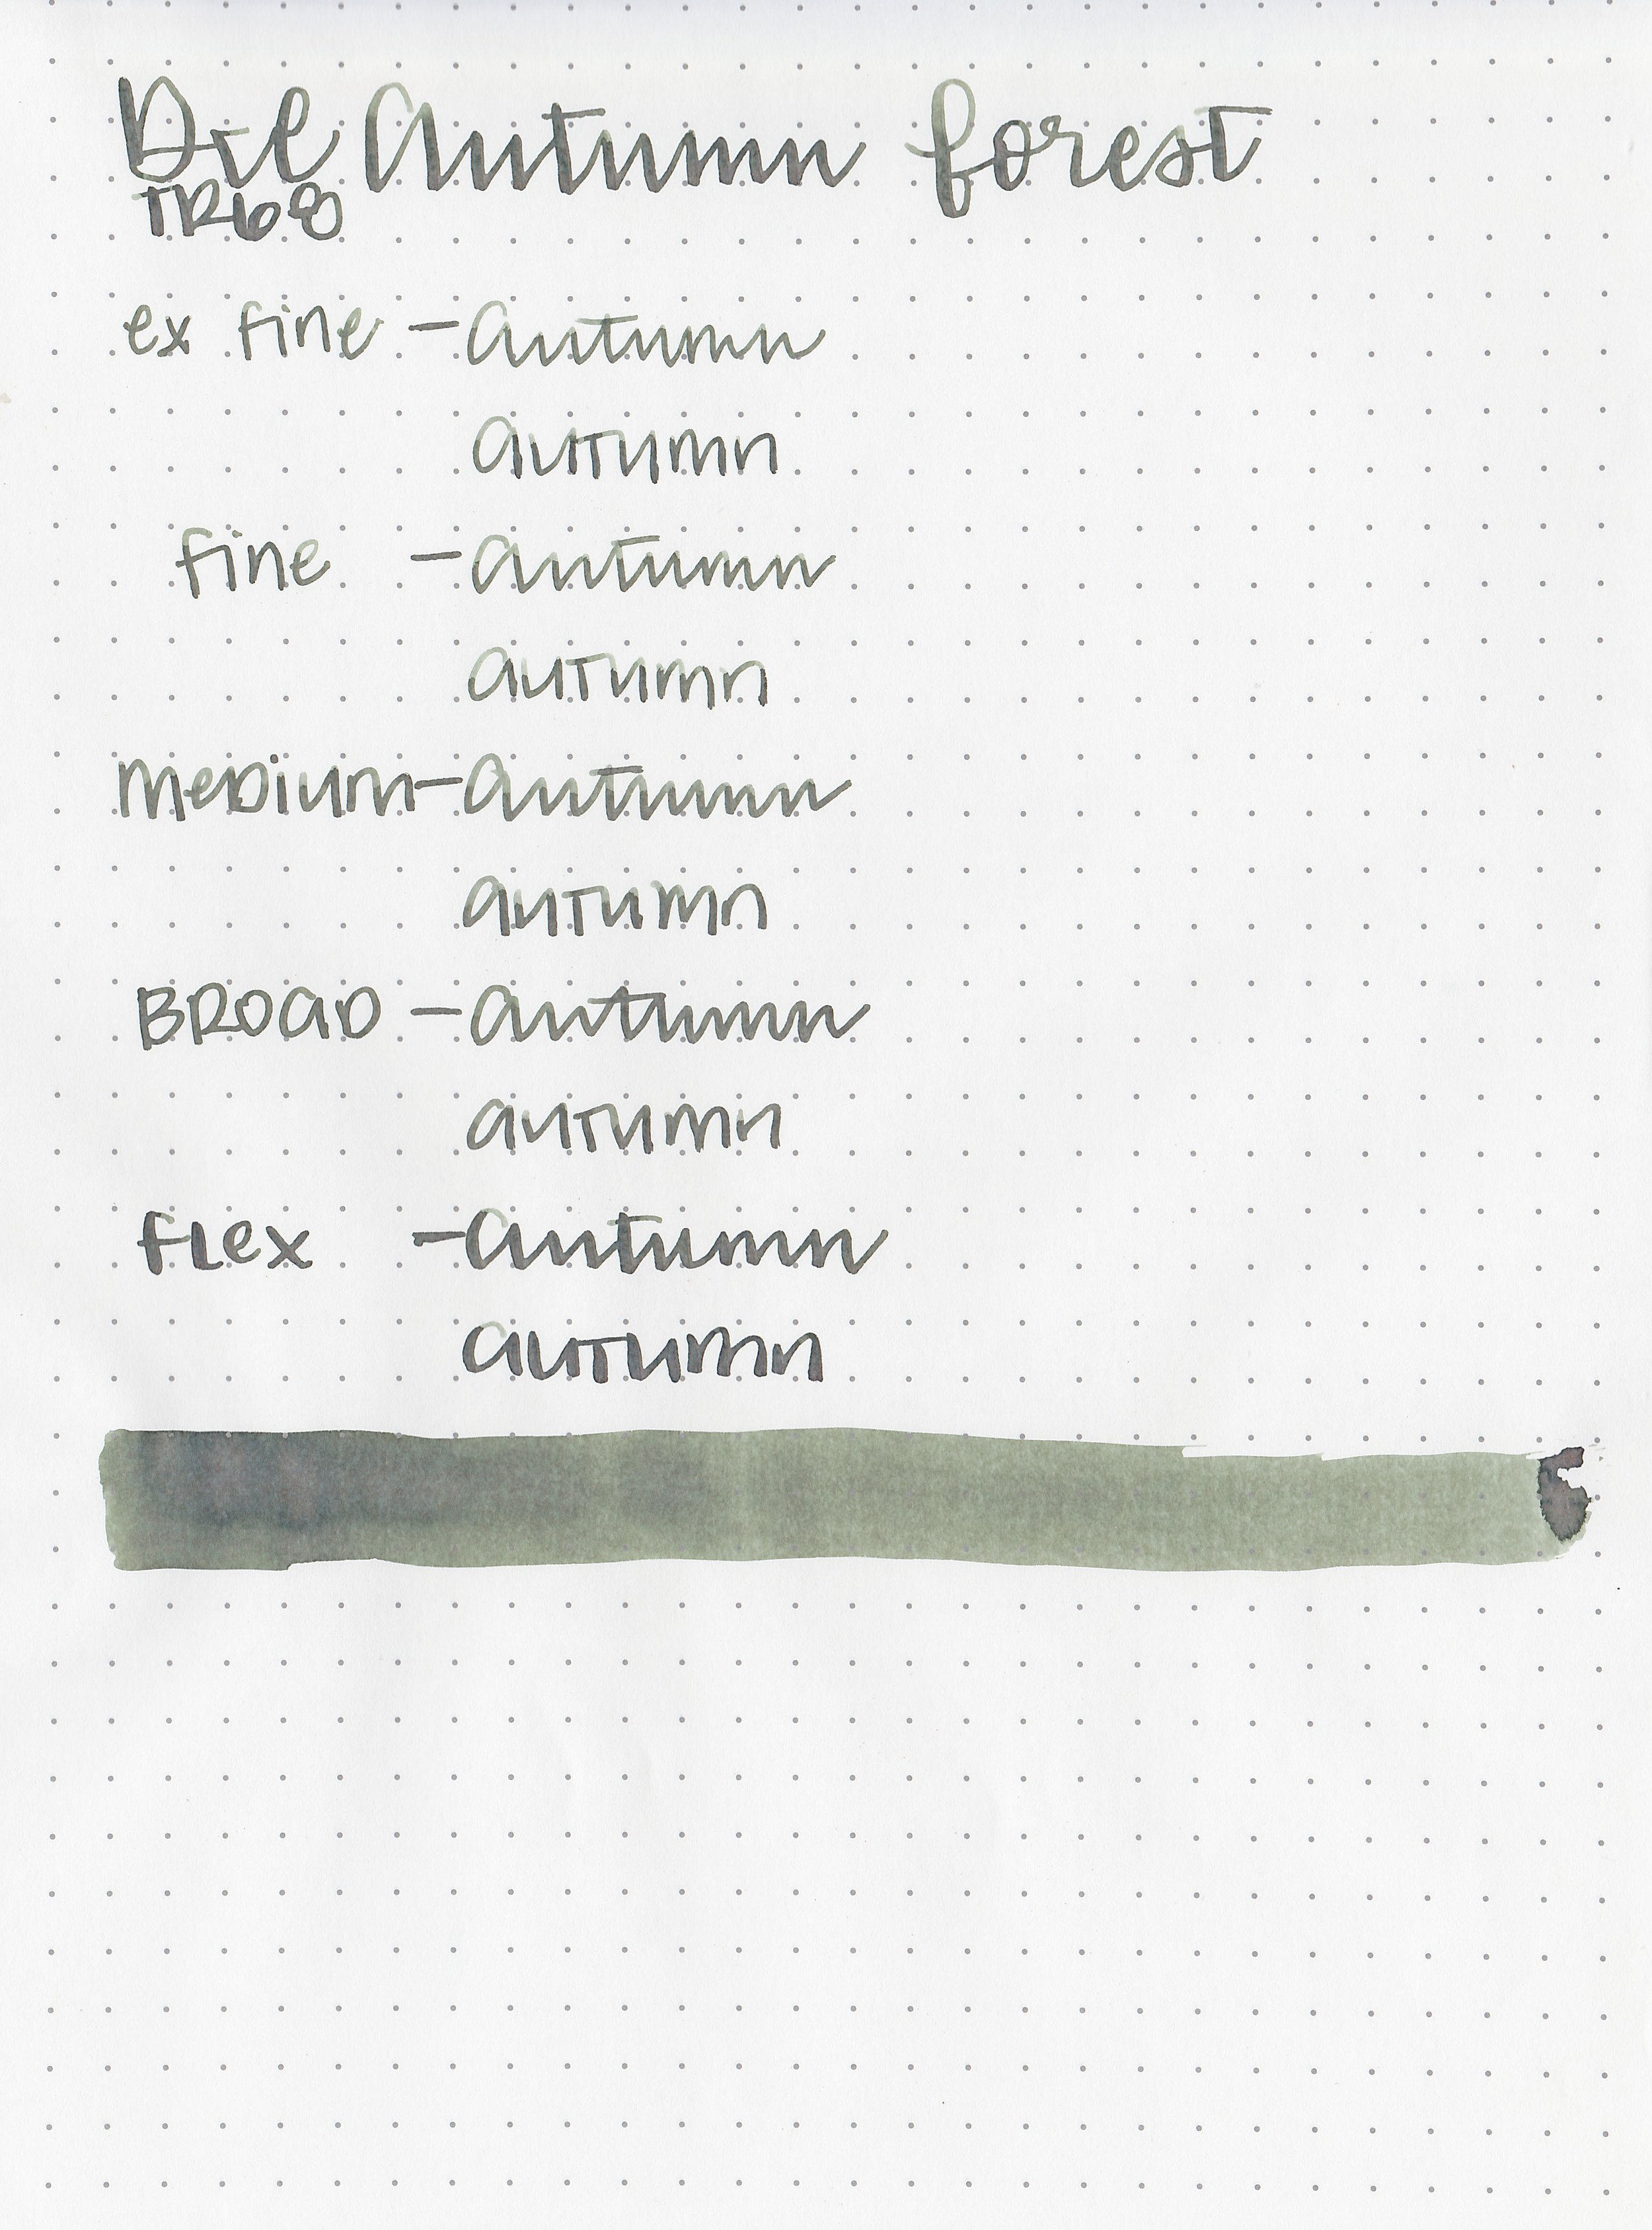 DTE Autumn forest
TR68
ex fine - autumn
autumn
fine - autumn
autumn
MeDium - autumn
autumn
BROaD - autumn
autumn
FLex - autumn
autumn